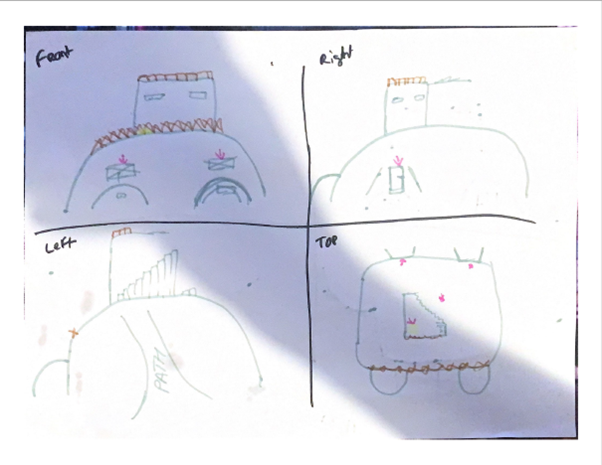 Front
Right
Left
PATH
TOP